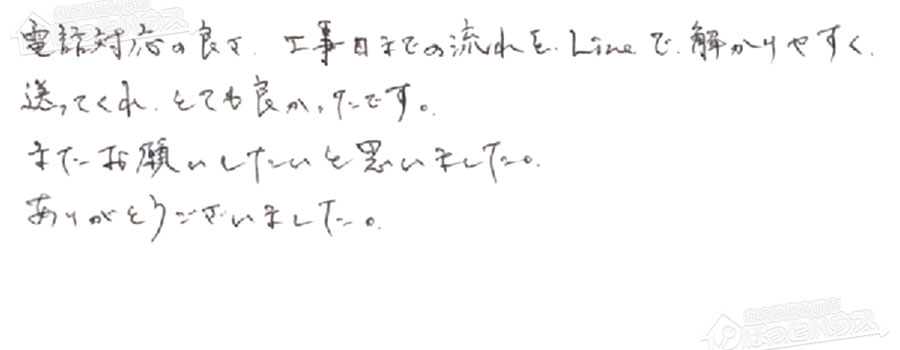 電話対応の良さ、工事日までの流れを、Lineで、解かりやすく、
送ってくれ、とても良かったです。
またお願いしたいと思いました。
ありがとうございました。
ほっとハウス